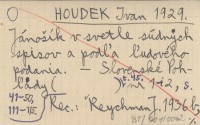 HOUDEK Ivan 1929.
Jánošík v svetle súdnych
spisov a podľa ľudového
podania. — Slovenské Poh-
ľady
41-50,
111-115.
Rec.: Reychman J. 1936